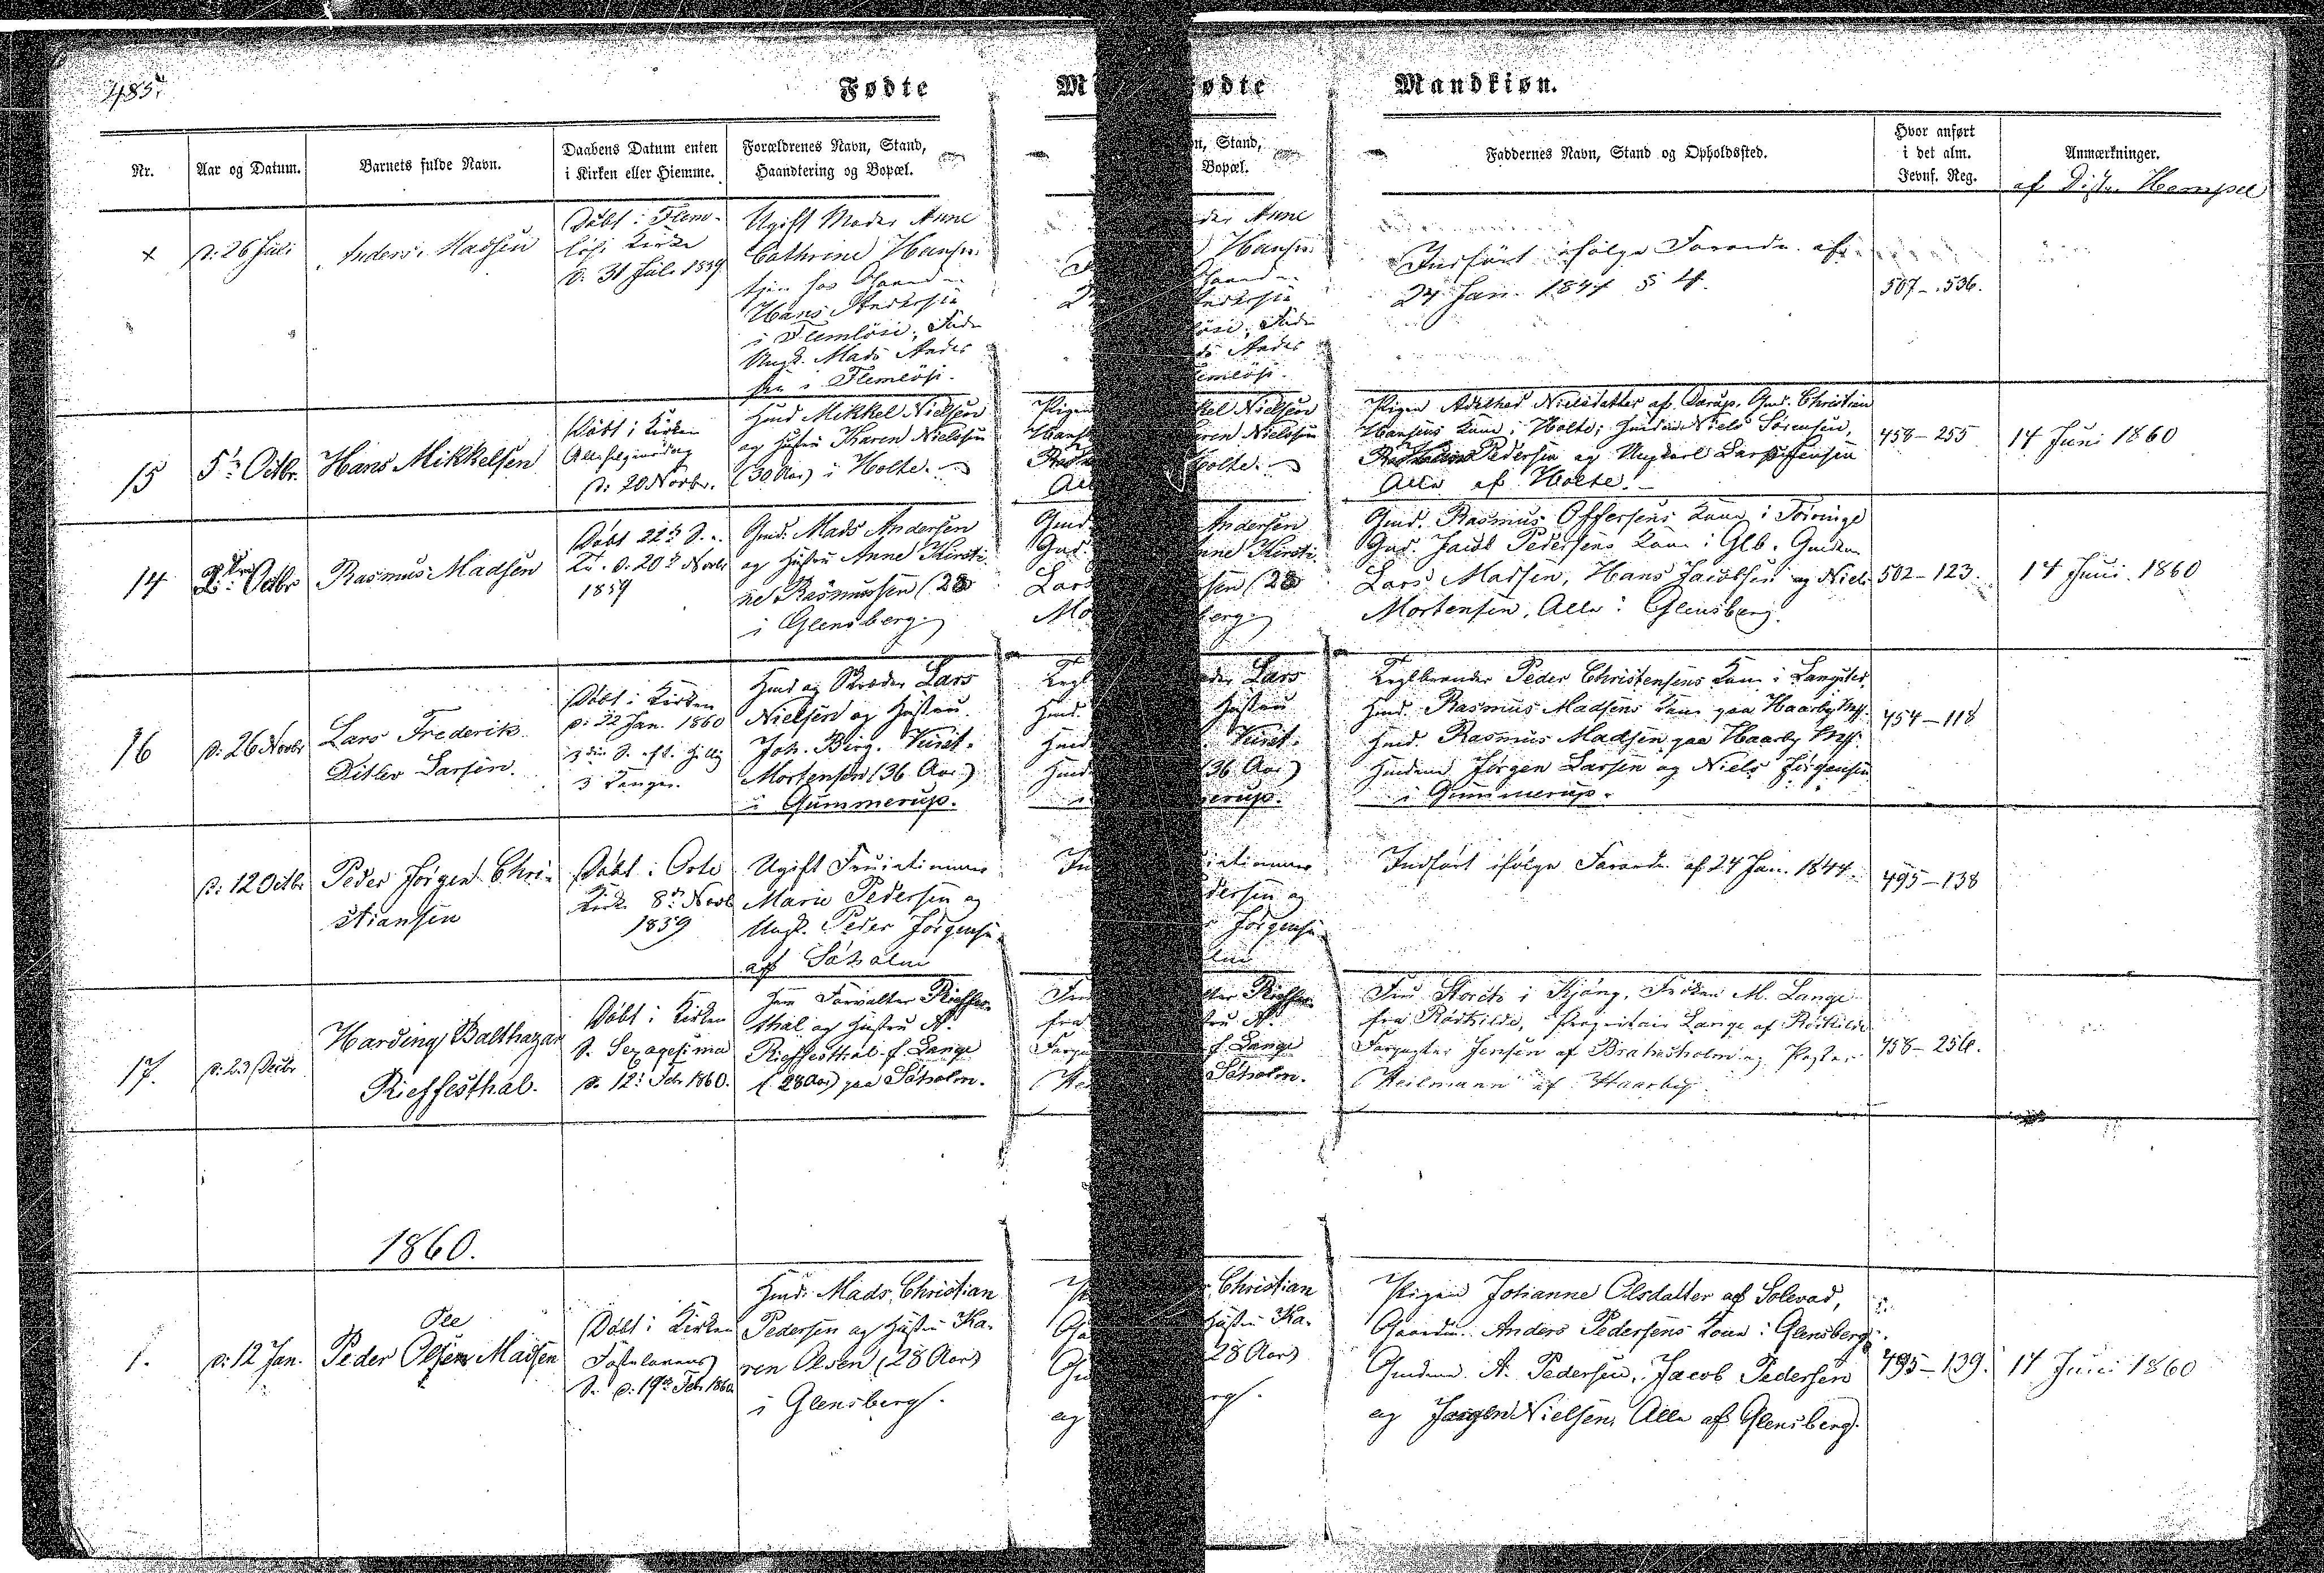 485.
Fødte
Mandkiøn.
Nr.
Aar og Datum.
Barnets fulde Navn.
Daabens Datum enten
i Kirken eller Hiemme.
Forældrenes Navn, Stand,
Haandtering og Bopæl.
Faddernes Navn, Stand og Opholdssted.
Hvor anført
i det alm.
Jevnf. Reg.
Anmærkninger.
af Distr. Hempel
+
d: 26 Juli
Anders Madsen
Døbt i Flem-
løse Kirke
d. 31 Juli 1859
Ugift Moder Anne
Cathrine Hansen
tjen hos Gaardm
Hans Andersen
i Flemløse;
Ungk. Mads Ander
sen i Flemløse.
Indført ifølge Forordn. af
24 Jan. 1844 § 4.
507-536.
15
5te Octbr.
Hans Mikkelsen
Døbt i Kirken
d. 20 Novbr.
Hmd Mikkel Nielsen
og Hustru Karen Nielsen
(30 Aar) i Holte.
Pigen Nielsdatter af Dærup. Gmd. Christian
Hansens Kone i Holte; Hmdene Niels Sørensen,
Pedersen og Ungkarl Lars Jensen
Alle af Holte.
458-255
14 Juni 1860
14
Octbr
Rasmus Madsen
Døbt 22de S. e.
Tr. d. 20de Novbr
1859
Gmd. Mads Andersen
og Hustru Anne Kirsti-
ne Rasmussen (28
i Glensberg
Gmd. Rasmus Offersens Kone i Voringe
Gmd. Jacob Pedersens Kone i Glb. Gmdene
Lars Madsen, Hans Jacobsen og Niels
Mortensen, Alle i Glensberg.
502-123.
14 Juni 1860
16
d. 26 Novbr
Lars Frederik
Ditlev Larsen.
Døbt i Kirken
d: 22 Jan. 1860
3die S. eft. Hellig
3 Konger.
Hmd og Skræder Lars
Nielsen og Hustru
Joh. Birg. Kirst.
Mortensen (36 Aar)
i Gummerup.
Teglbrænder Peder Christensens Kone i
Hmd. Rasmus Madsens Kone paa Haarby Mk.
Hmd. Rasmus Madsen paa Haarby Mk.
Hmdene Jørgen Larsen og Niels Jørgensen
i Gummerup.
454-118
d: 12 Octbr
Peder Jørgen Chri-
stiansen
Døbt i Orte
Kirke 8de Novb
1859
Ugift Fruentimmer
Marie Pedersen og
Ungk. Peder Jørgensen
af Søholm
Indført ifølge Forordn. af 24 Jan. 1844.
495-138
17.
d. 23 Decbr
Harding Balthazar
Rieffesthal.
Døbt i Kirken
S. Sexagesima
d. 12te Feb 1860.
Herr Forvalter Rieffes-
thal og Hustru A.
Rieffesthal f. Lange
(28 Aar) paa Søholm.
Fru Storck i Kjøng, Frøken M. Lange
fra Roskilde, Proprietair Lange af Roskilde
Forpagter Jensen af Brahesholm og Pastor
Heilmann af Haarby
458-256.
1860.
1.
d: 12 Jan.
Ole
Peder Olsen Madsen
Døbt i Kirken
Fastelavns
S. d. 19de Feb 1860
Hmd. Mads Christian
Pedersen og Hustru Ka-
ren Olsen (28 Aar)
i Glensberg.
Pigen Johanne Olsdatter af Solevad,
Gaardm. Anders Pedersens Kone i Glensberg
Gmdene A. Pedersen, Jacob Pedersen
og Jørgen Nielsen, Alle af Glensberg.
495-139.
14 Juni 1860